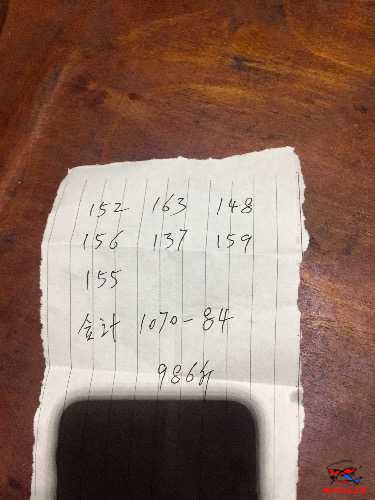 152 163 148
156 137 159
155
合计 1070-84
986斤